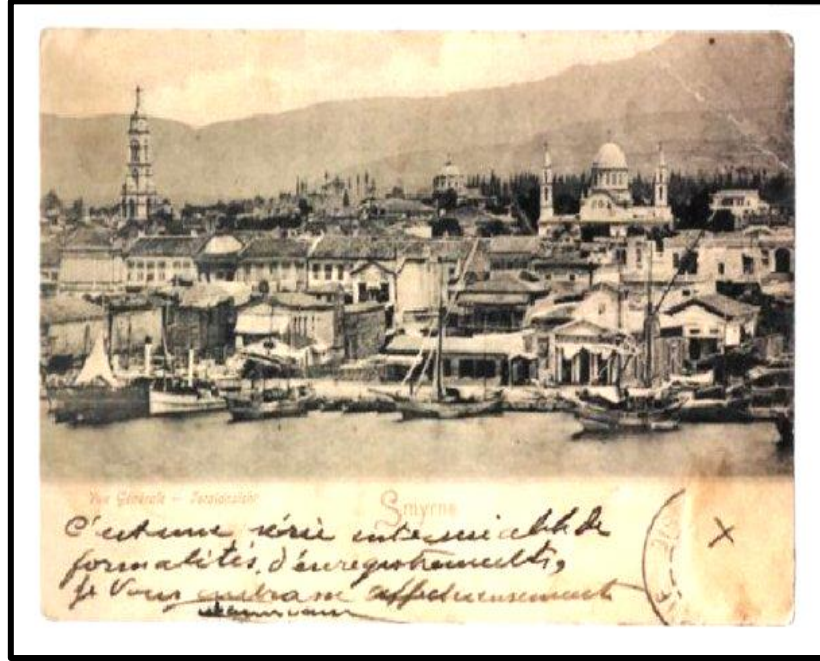 Vue Générale – Totalansicht
Smyrne
C'est une série interminable de
formalités, d'enregistrements,
je vous embrasse affectueusement
X